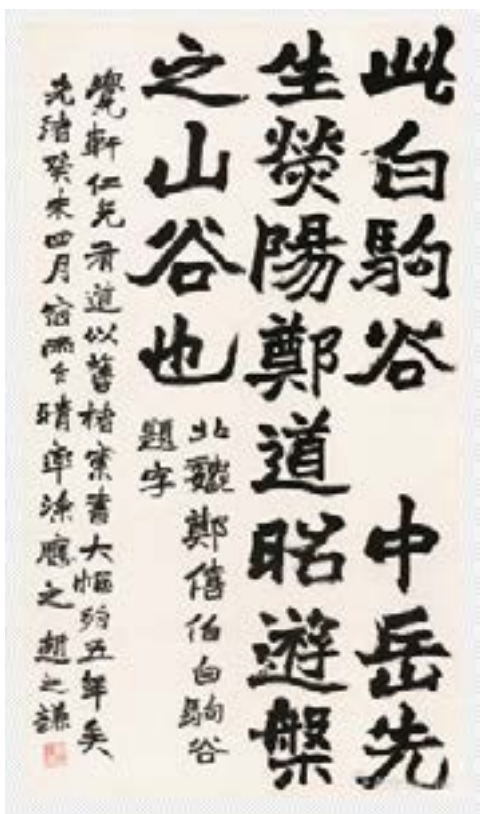 此白駒谷 中岳先
生熒陽鄭道昭遊槃
之山谷也
北魏鄭僖伯白駒谷
題字
覺軒仁兄有道以舊楮索書大幅約五年矣
光緒癸未四月宿雨乍晴率應之 趙之謙